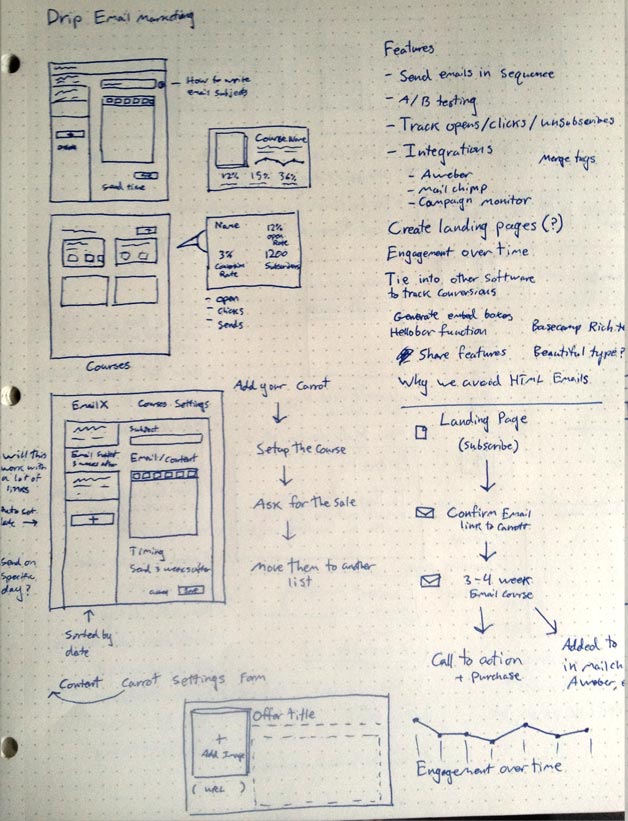 Drip Email Marketing
How to write
email subjects
Send time
Course Name
12% 15% 36%
Name
12%
open
Rate
3%
1200
Conversion
Rate
Subscribers
- open
- clicks
- Sends
Courses
Features
- Send emails in sequence
- A/B testing
- Track opens/clicks/unsubscribes
- Integrations
Merge tags
- Aweber
- Mail chimp
- Campaign monitor
Create landing pages (?)
Engagement over time
Tie into other software
to track conversions
Generate embed boxes
Hellobar function
Basecamp Rich
Share features
Beautiful type?
Why we avoid HTML Emails
EmailX
Courses Settings
Subject
Email/content
3 weeks after
Timing
Send 3 weeks after
Will this
work with
a lot of
lines
Send on
specific
day?
Sorted by
date
Add your Carrot
Setup the course
Ask for the sale
Move them to another
list
Landing Page
(subscribe)
Confirm Email
link to carrot
3-4 week
Email course
Call to action
+ Purchase
Added to
in mailch
Aweber,
Content Carrot Settings Form
Offer title
+
Add Image
(URL)
Engagement over time